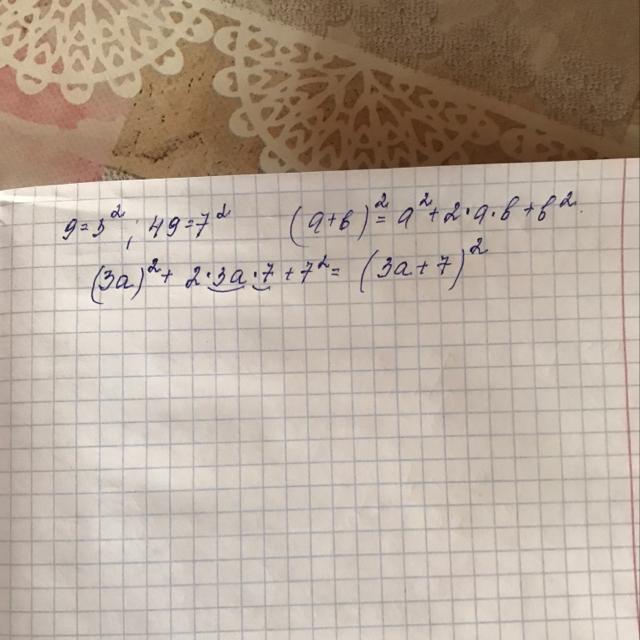 9=3²; 49=7² (a+b)²=a²+2·a·b+b².
(3a)²+2·3a·7+7²=(3a+7)²